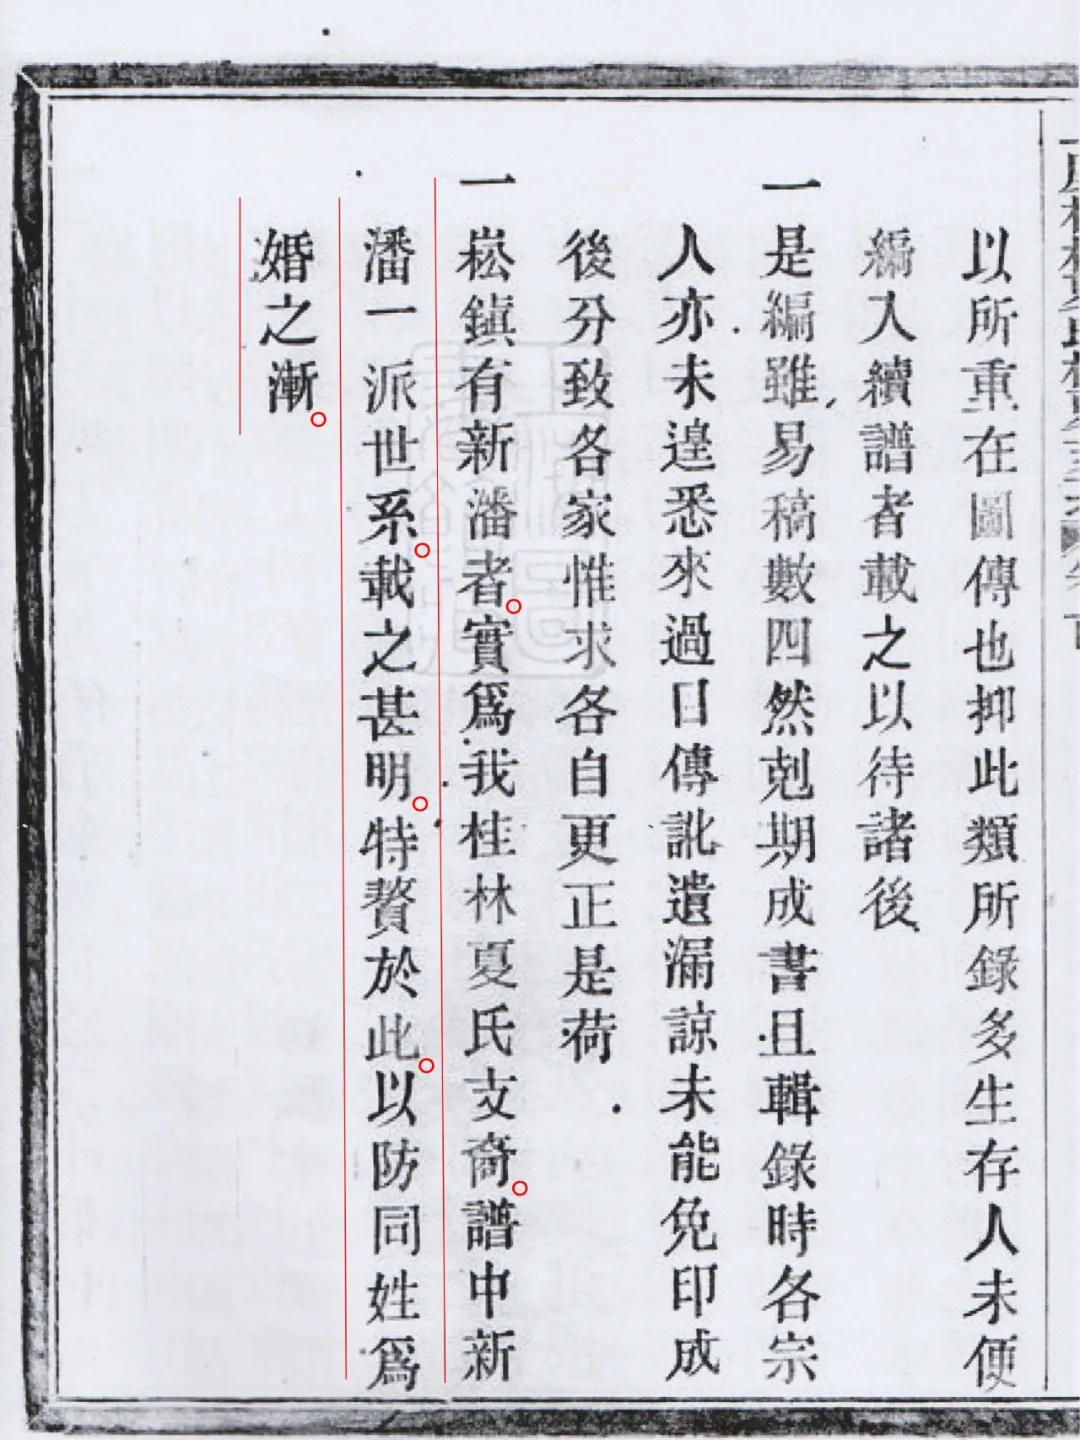 以所重在圖傳也抑此類所錄多生存人未便
編入續譜者載之以待諸後
一是編雖易稿數四然剋期成書且輯錄時各宗
人亦未遑悉來過日傳訛遺漏諒未能免印成
後分致各家惟求各自更正是荷
一崧鎮有新潘者。實爲我桂林夏氏支裔。譜中新
潘一派世系。載之甚明。特贅於此。以防同姓爲
婚之漸。